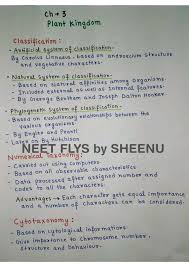 Ch → 3
Plant Kingdom
Classification :-
→ Artificial System of classification-
By Carolus Linnaeus, based on androecium structure
and vegetative characters.
→ Natural System of classification -
- Based on Natural affinities among organisms
- Included external as well as internal features
- By George Bentham and Joseph Dalton Hooker
→ Phylogenetic System of classification -
- Based on evolutionary relationships between the
various organisms
- By Engler and Prantl
- Later on By Hutchinson
NEET FLYS by SHEENU
Numerical Taxonomy :-
- Carried out using computers
- Based on all observable characteristics
- Data processed after assigned number and
codes to all the characters.
Advantages → Each character gets equal importance
and a number of characters can be considered.
Cytotaxonomy :-
- Based on cytological informations
- Give importance to chromosome number,
structure and behaviour.